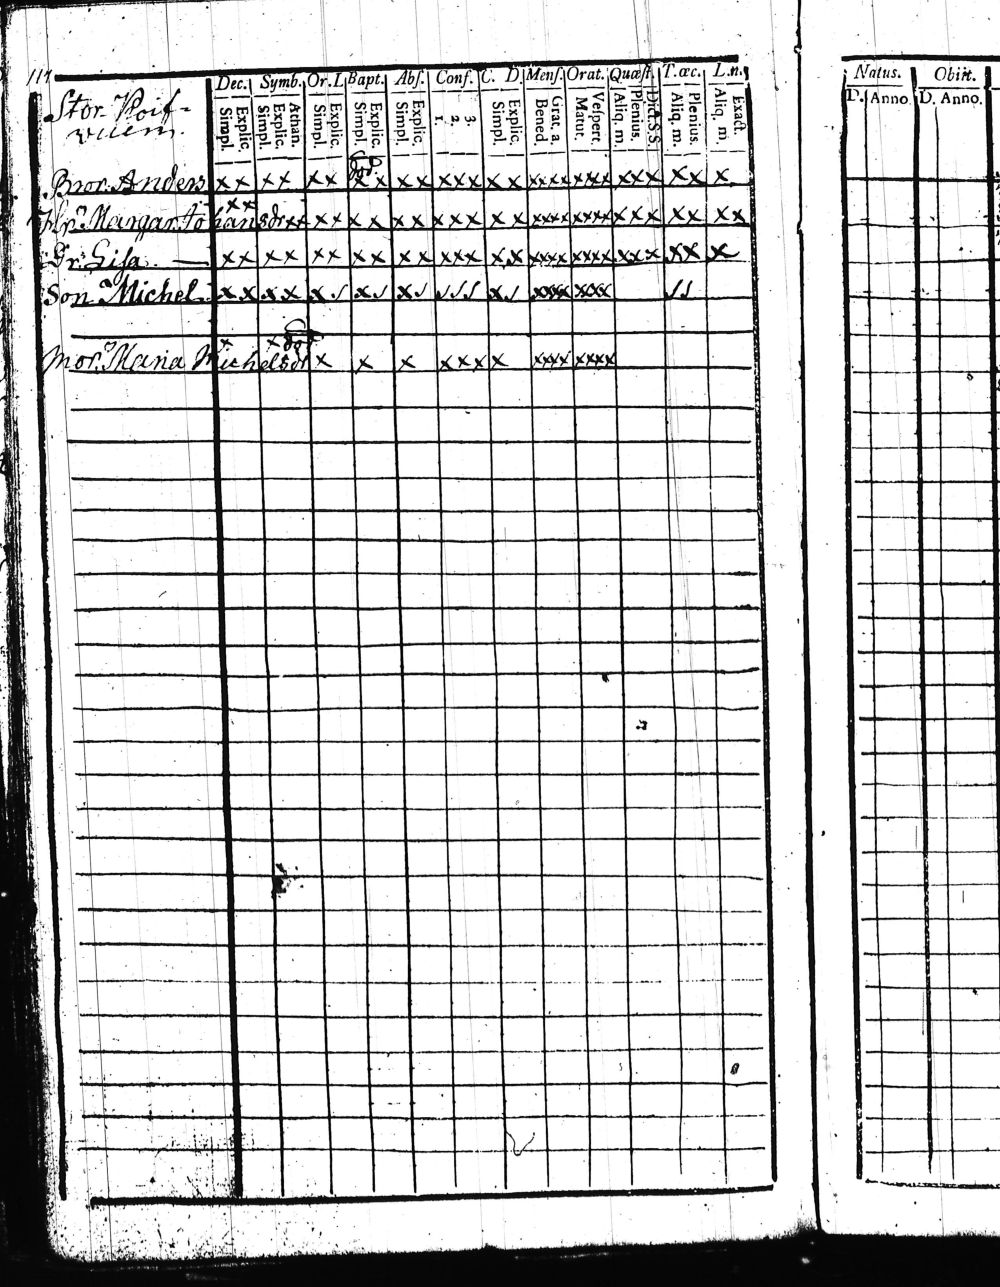 117
Dec. Symb. Or. L Bapt. Abs. Conf. C. D. Mens. Orat. Quæst. T. œc. L. n. Natus. Obiit.
Explic. Simpl. Athan. Explic. Simpl. Explic. Simpl. Explic. Simpl. Explic. Simpl. 1. 2. 3. Explic. Simpl. Grat. a. Bened. Vespert. Matut. Dict. S. S Plenius. Aliq. m. Plenius. Aliq. m. Exact. Aliq. m. D. Anno. D. Anno.
Stor-Koif-
Bror. Anders x x x x x x x x x x x x x x x xxxx xxxx x x x x x x
x x
Margar. Johansdr x x x x x x x x x x x x x xxxx xxxx x x x x x x x
Lisa. — x x x x x x x x x x x x x x x xxxx xxxx x x x x x x
Son Michel x x x x x / x / x / / / / x / xxxx xxx / /
x x
Mor. Maria Michelsdr x x x x x x x xxxx xxxx